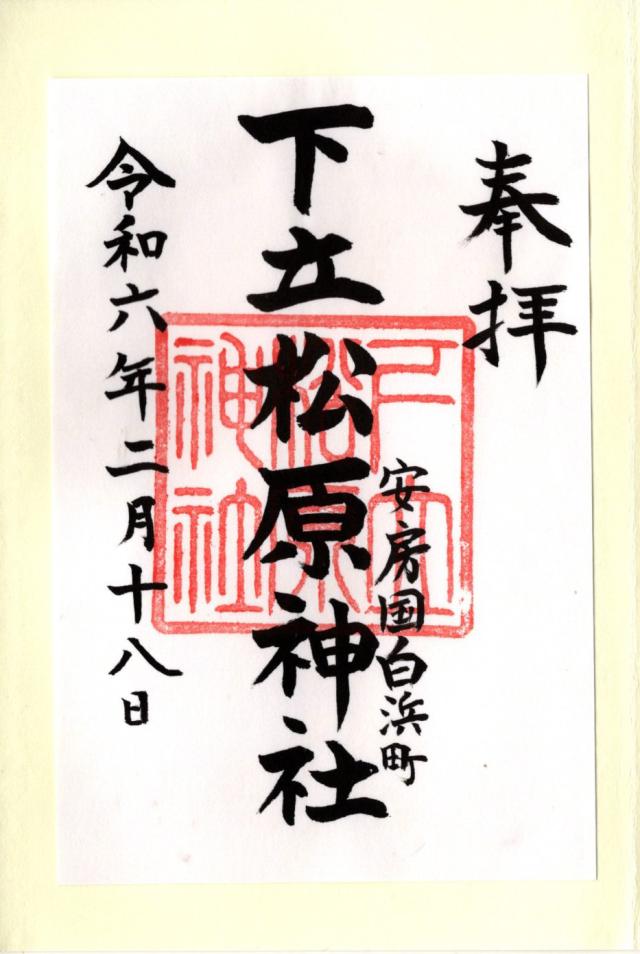 奉拝
安房国白浜町
下立松原神社
下立松原神社
令和六年二月十八日